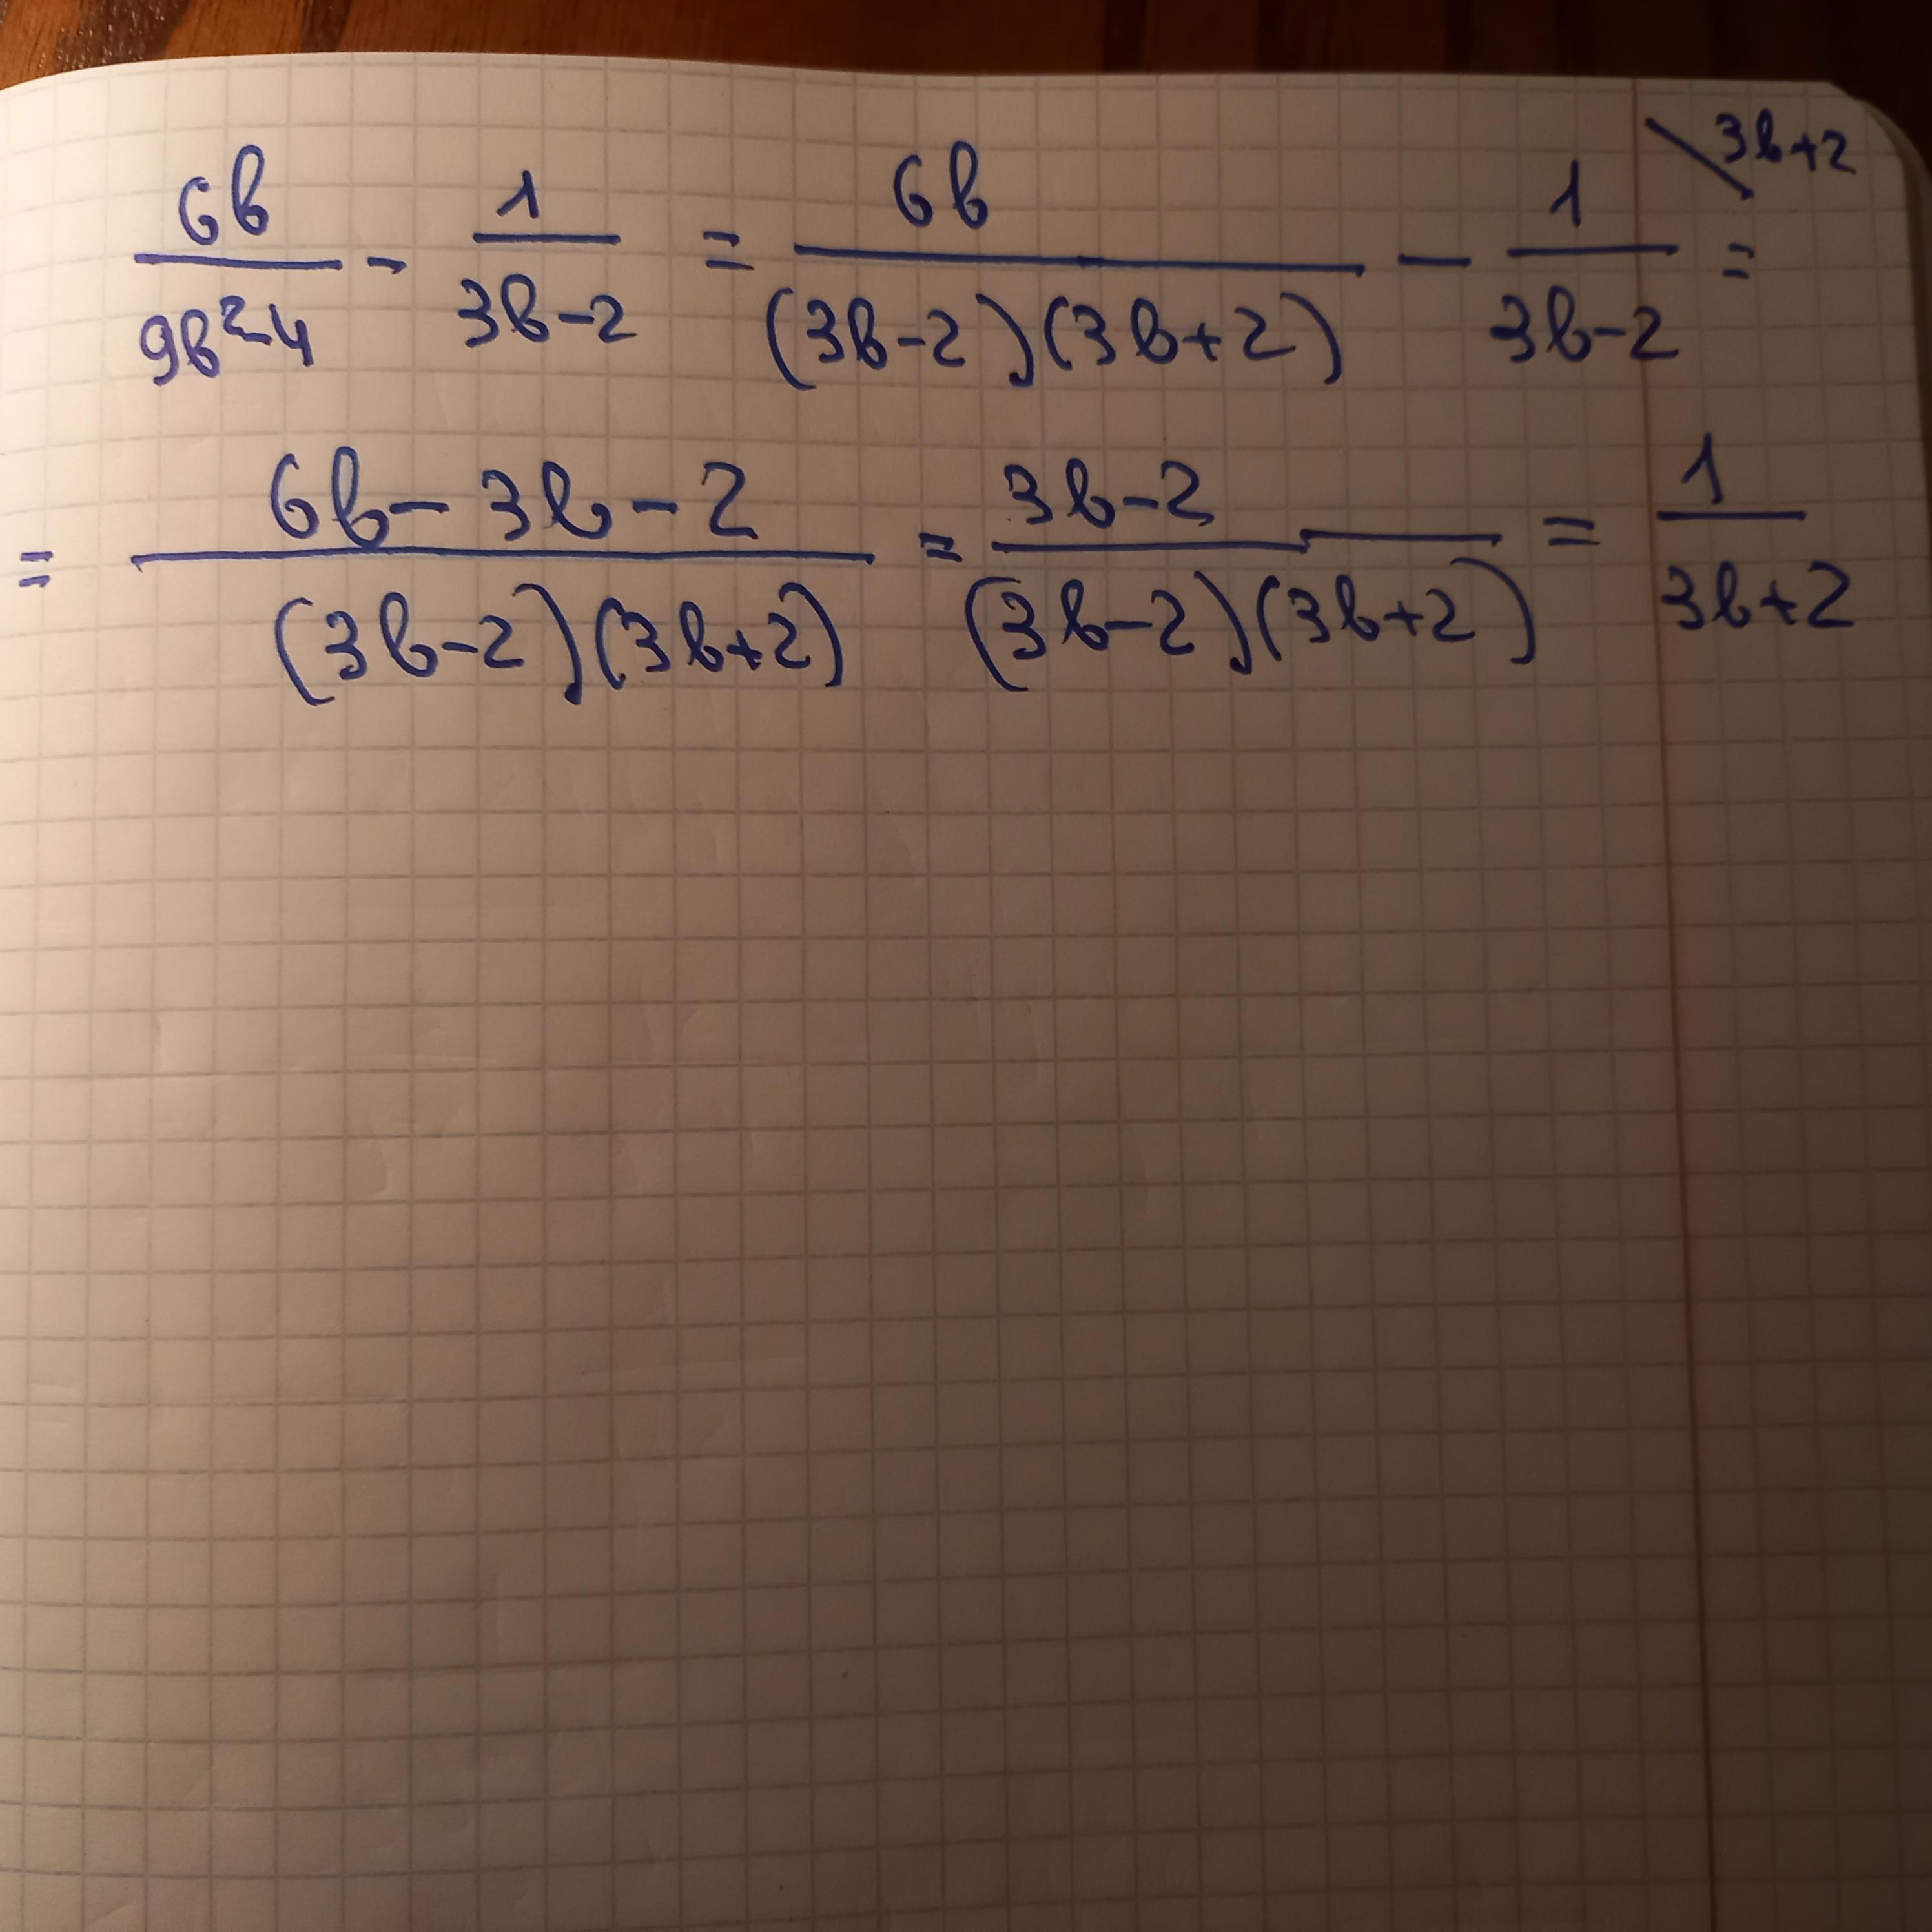 6b/(9b²-4) - 1/(3b-2) = 6b/((3b-2)(3b+2)) - 1/(3b-2) \3b+2 =
= (6b-3b-2)/((3b-2)(3b+2)) = (3b-2)/((3b-2)(3b+2)) = 1/(3b+2)